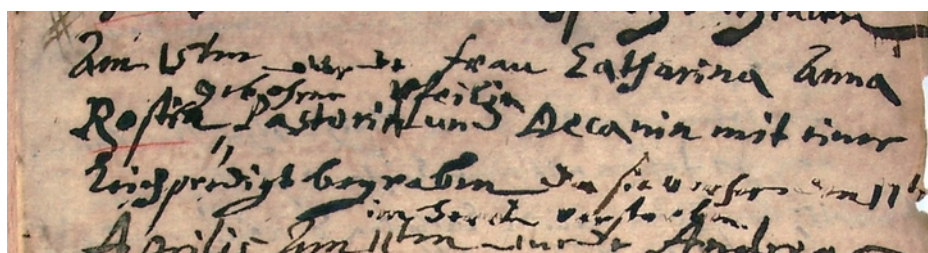 Am 15ten wurde Frau Catharina Anna
gebohrne Pfeilin
Rostin Pastorin und Decanin mit einer
Leichpredigt begraben da sie vorher am 11ten
im Herrn verstorben
Aprilis Am 11ten wurde Andreas